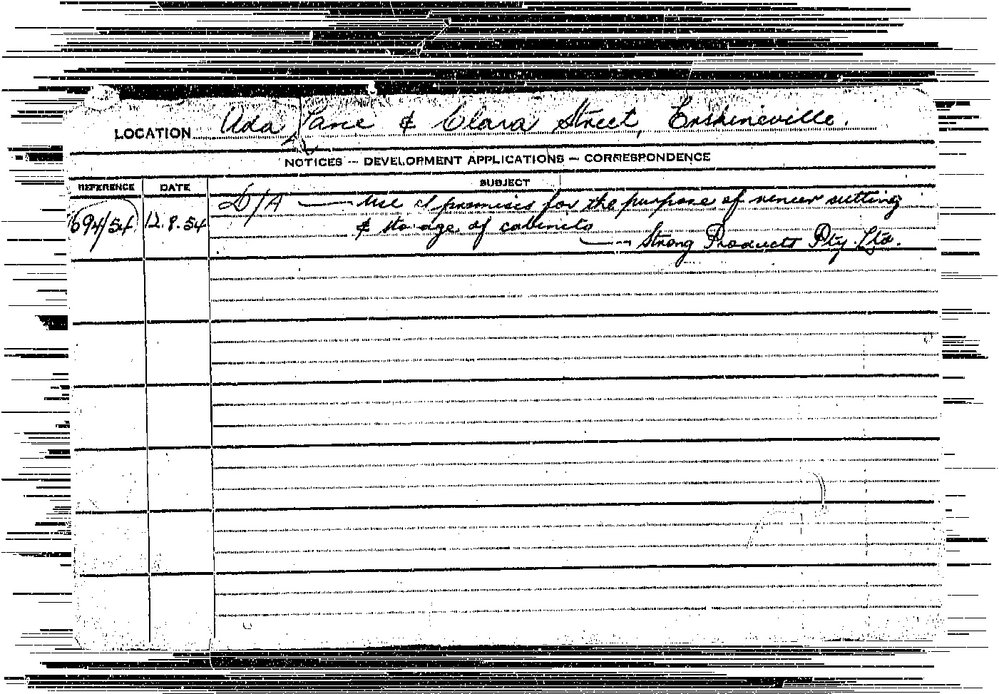 LOCATION Ada Lane & Clara Street, Erskineville.
NOTICES — DEVELOPMENT APPLICATIONS — CORRESPONDENCE
REFERENCE DATE SUBJECT
694/54 12.8.54 D/A — Use of premises for the purpose of veneer cutting
& storage of cabinets — Strong Products Pty. Ltd.